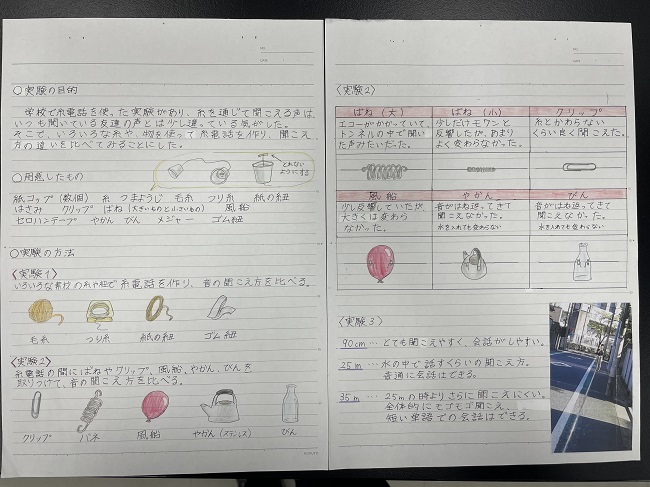 ○実験の目的
学校で糸電話を使った実験があり、糸を通じて聞こえる声は、
いつも聞いている友達の声とは少し違っている気がした。
そこで、いろいろな糸や、物を使って糸電話を作り、聞こえ
方の違いを比べてみることにした。
○用意したもの
とれない
ようにする
紙コップ（数個） 糸 つまようじ 毛糸 つり糸 紙の紐
はさみ クリップ ばね（大きいものと小さいもの） 風船
セロハンテープ やかん びん メジャー ゴム紐
○実験の方法
〈実験1〉
いろいろな素材の糸や紐で糸電話を作り、音の聞こえ方を比べる。
毛糸 つり糸 紙の紐 ゴム紐
〈実験2〉
糸電話の間にばねやクリップ、風船、やかん、びんを
取りつけて、音の聞こえ方を比べる。
クリップ バネ 風船 やかん（ステンレス） びん
〈実験2〉
ばね（大） ばね（小） クリップ
エコーがかかっていて、
トンネルの中で聞い
た声みたいだった。
少しだけモワンと
反響したが、あまり
よく変わらなかった。
糸とかわらない
くらい良く聞こえた。
風船 やかん びん
少し反響していたが、
大きくは変わら
なかった。
音がはね返ってきて
聞こえなかった。
水を入れても変わらない
音がはね返ってきて
聞こえなかった。
水を入れても変わらない
〈実験3〉
90cm…とても聞こえやすく、会話がしやすい。
25m…水の中で話すくらいの聞こえ方。
普通に会話はできる。
35m…25mの時よりさらに聞こえにくい。
全体的にモゴモゴ聞こえ、
短い単語での会話はできる。